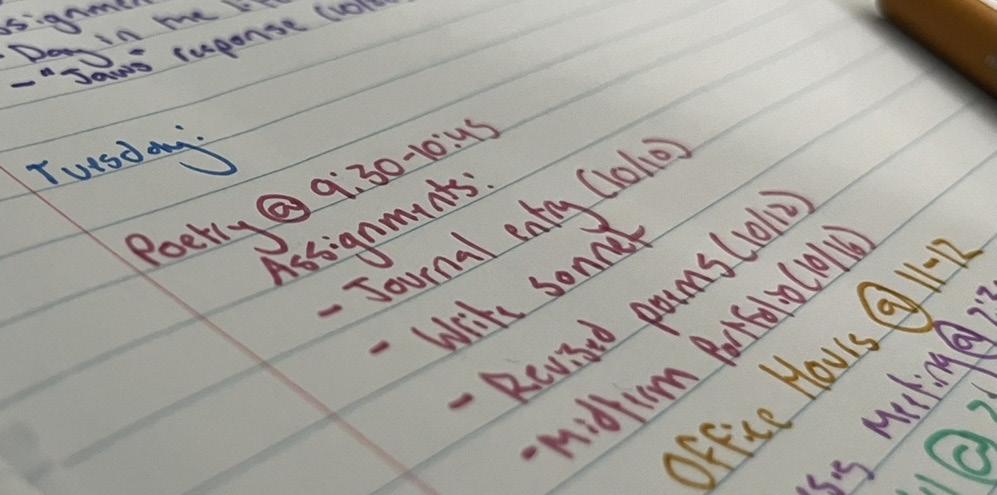 - Day in the
- "Jaws" response
Tuesday:
Poetry @ 9:30-10:45
Assignments:
- Journal entry (10/10)
- Write sonnet
- Revised poems (10/12)
- Midterm Portfolio (10/16)
Office Hours @ 11-12
Meeting @
@